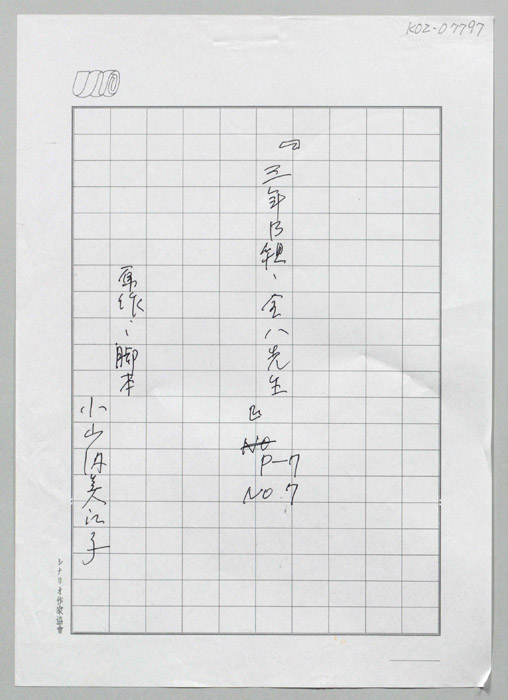 K02-07797
UNO
『三年B組、金八先生』
NO
P-7
NO 7
原作・脚本
小山内美江子
シナリオ作家協會